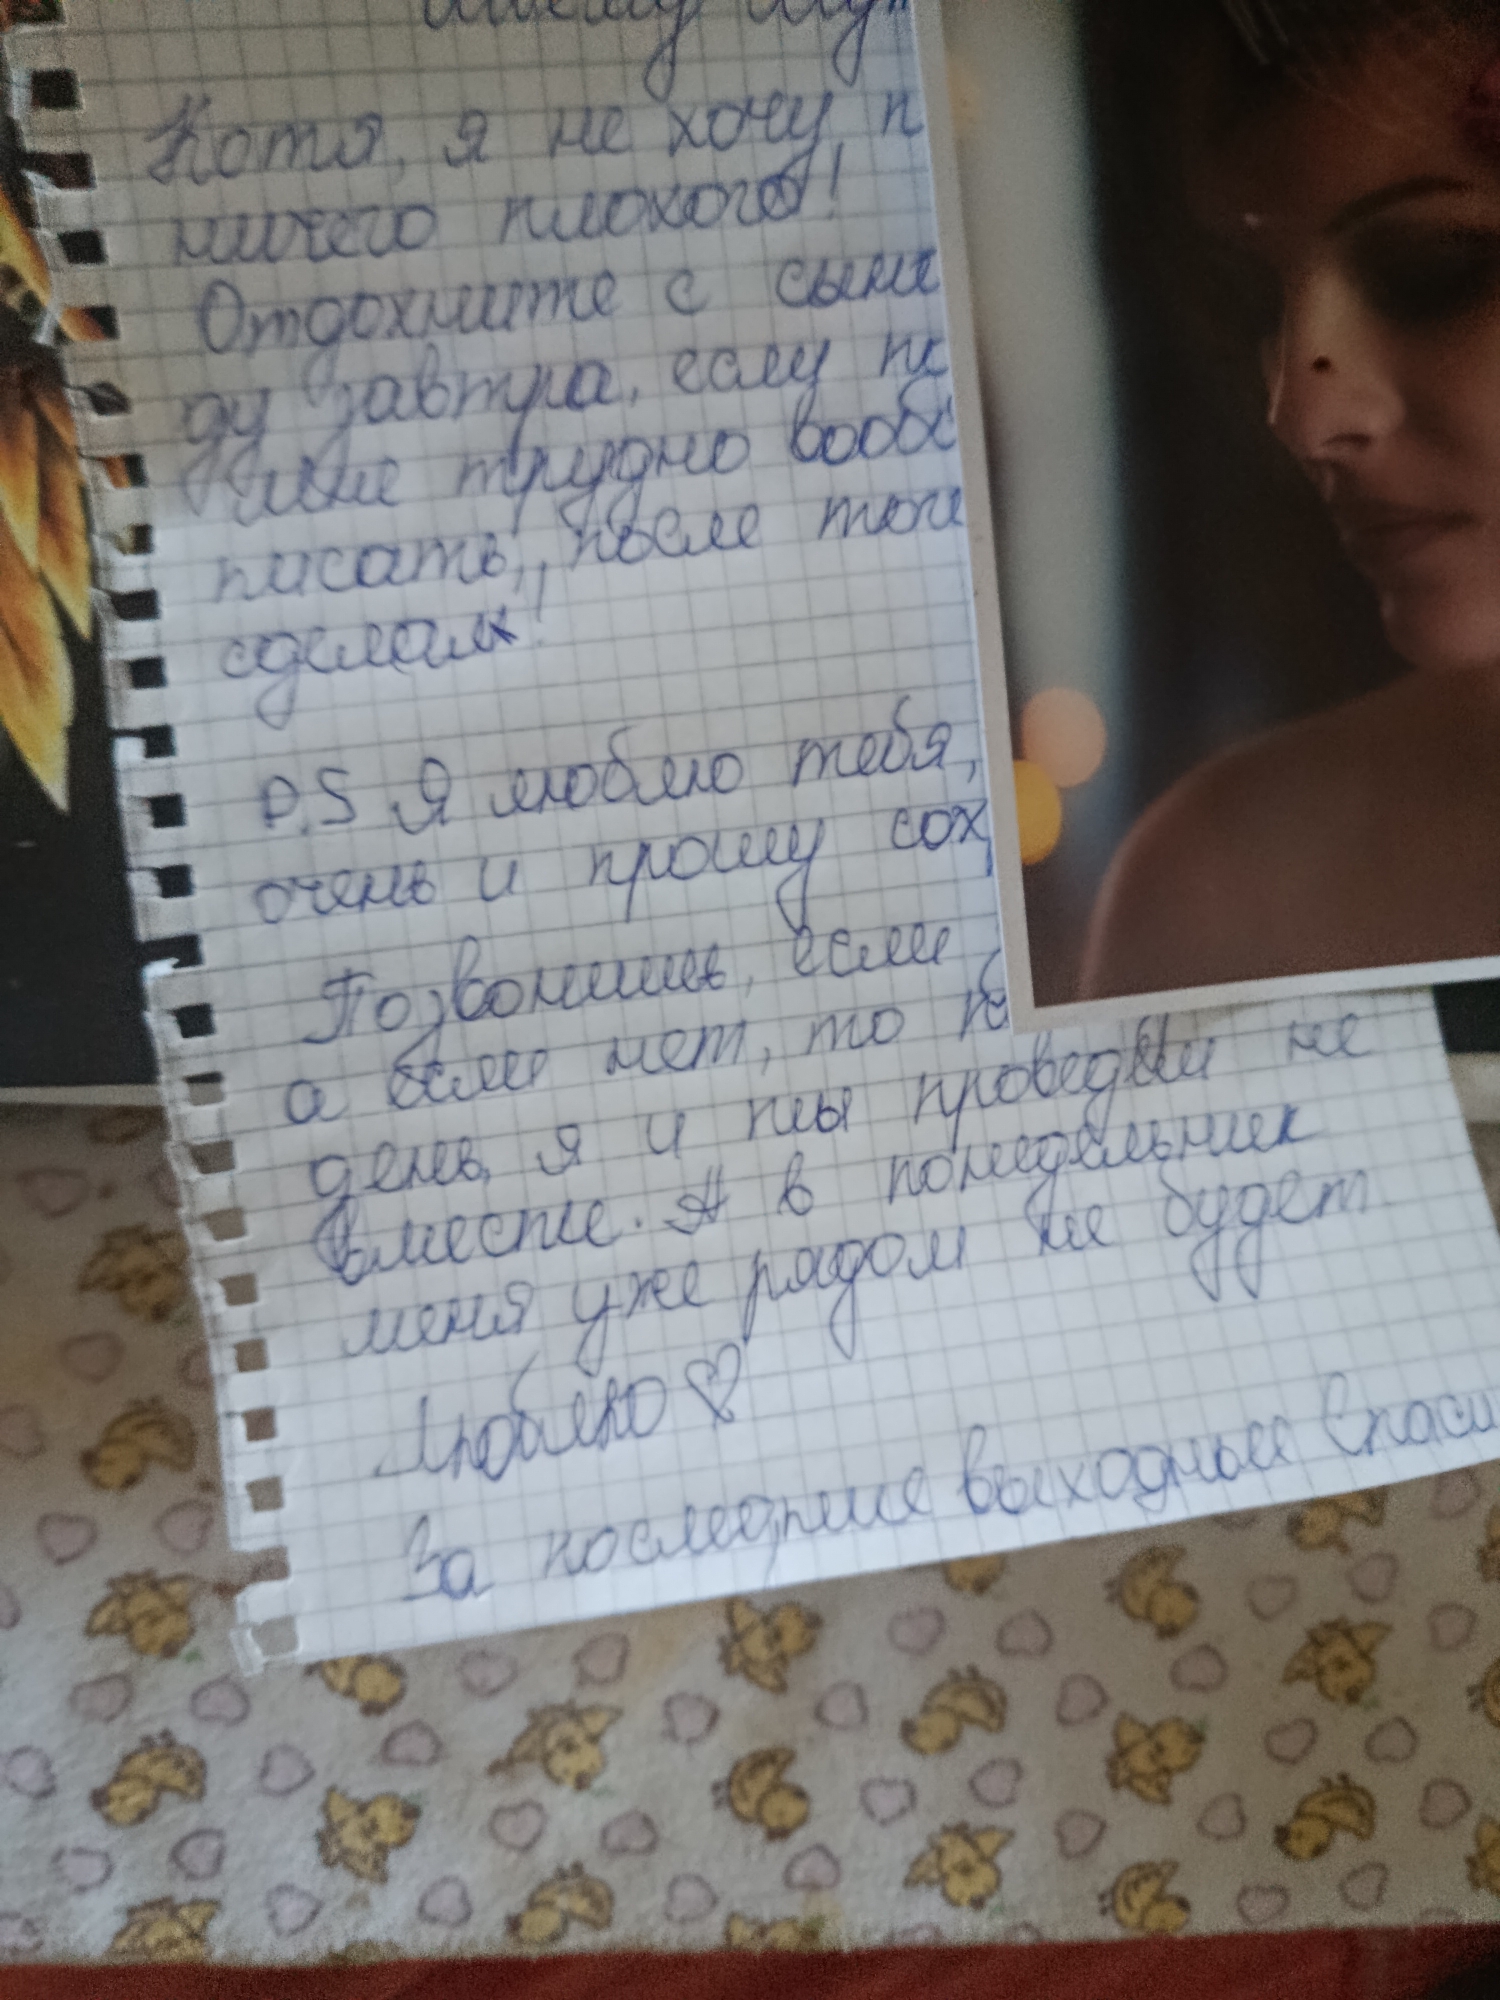 Котя, я не хочу п
ничего плохого!
Отдохните с сыно
ду завтра, если по
мне трудно вооб
писать, после того
сделал!
P.S Я люблю тебя,
очень и прошу сох
Позвонишь, если
а если нет, то
день я и ты проведём не
вместе. А в понедельник
меня уже рядом не будет.
Люблю ♡
За последние выходные Спаси